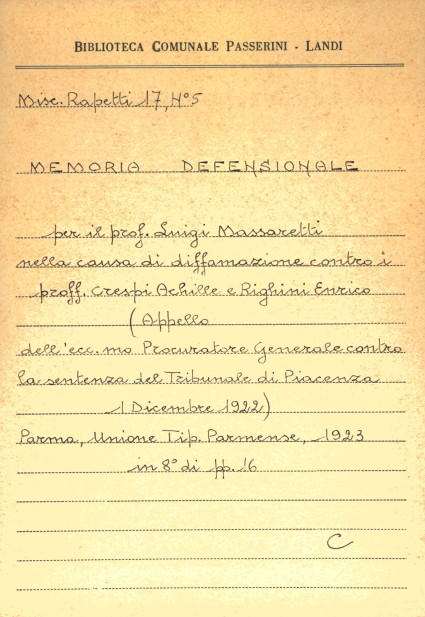 BIBLIOTECA COMUNALE PASSERINI - LANDI
Misc. Rapetti 17, N°5
MEMORIA DEFENSIONALE
per il prof. Luigi Massaretti
nella causa di diffamazione contro i
proff. Crespi Achille e Righini Enrico
(Appello
dell'ecc.mo Procuratore Generale contro
la sentenza del Tribunale di Piacenza
1 Dicembre 1922)
Parma, Unione Tip. Parmense, 1923
in 8° di pp. 16
C